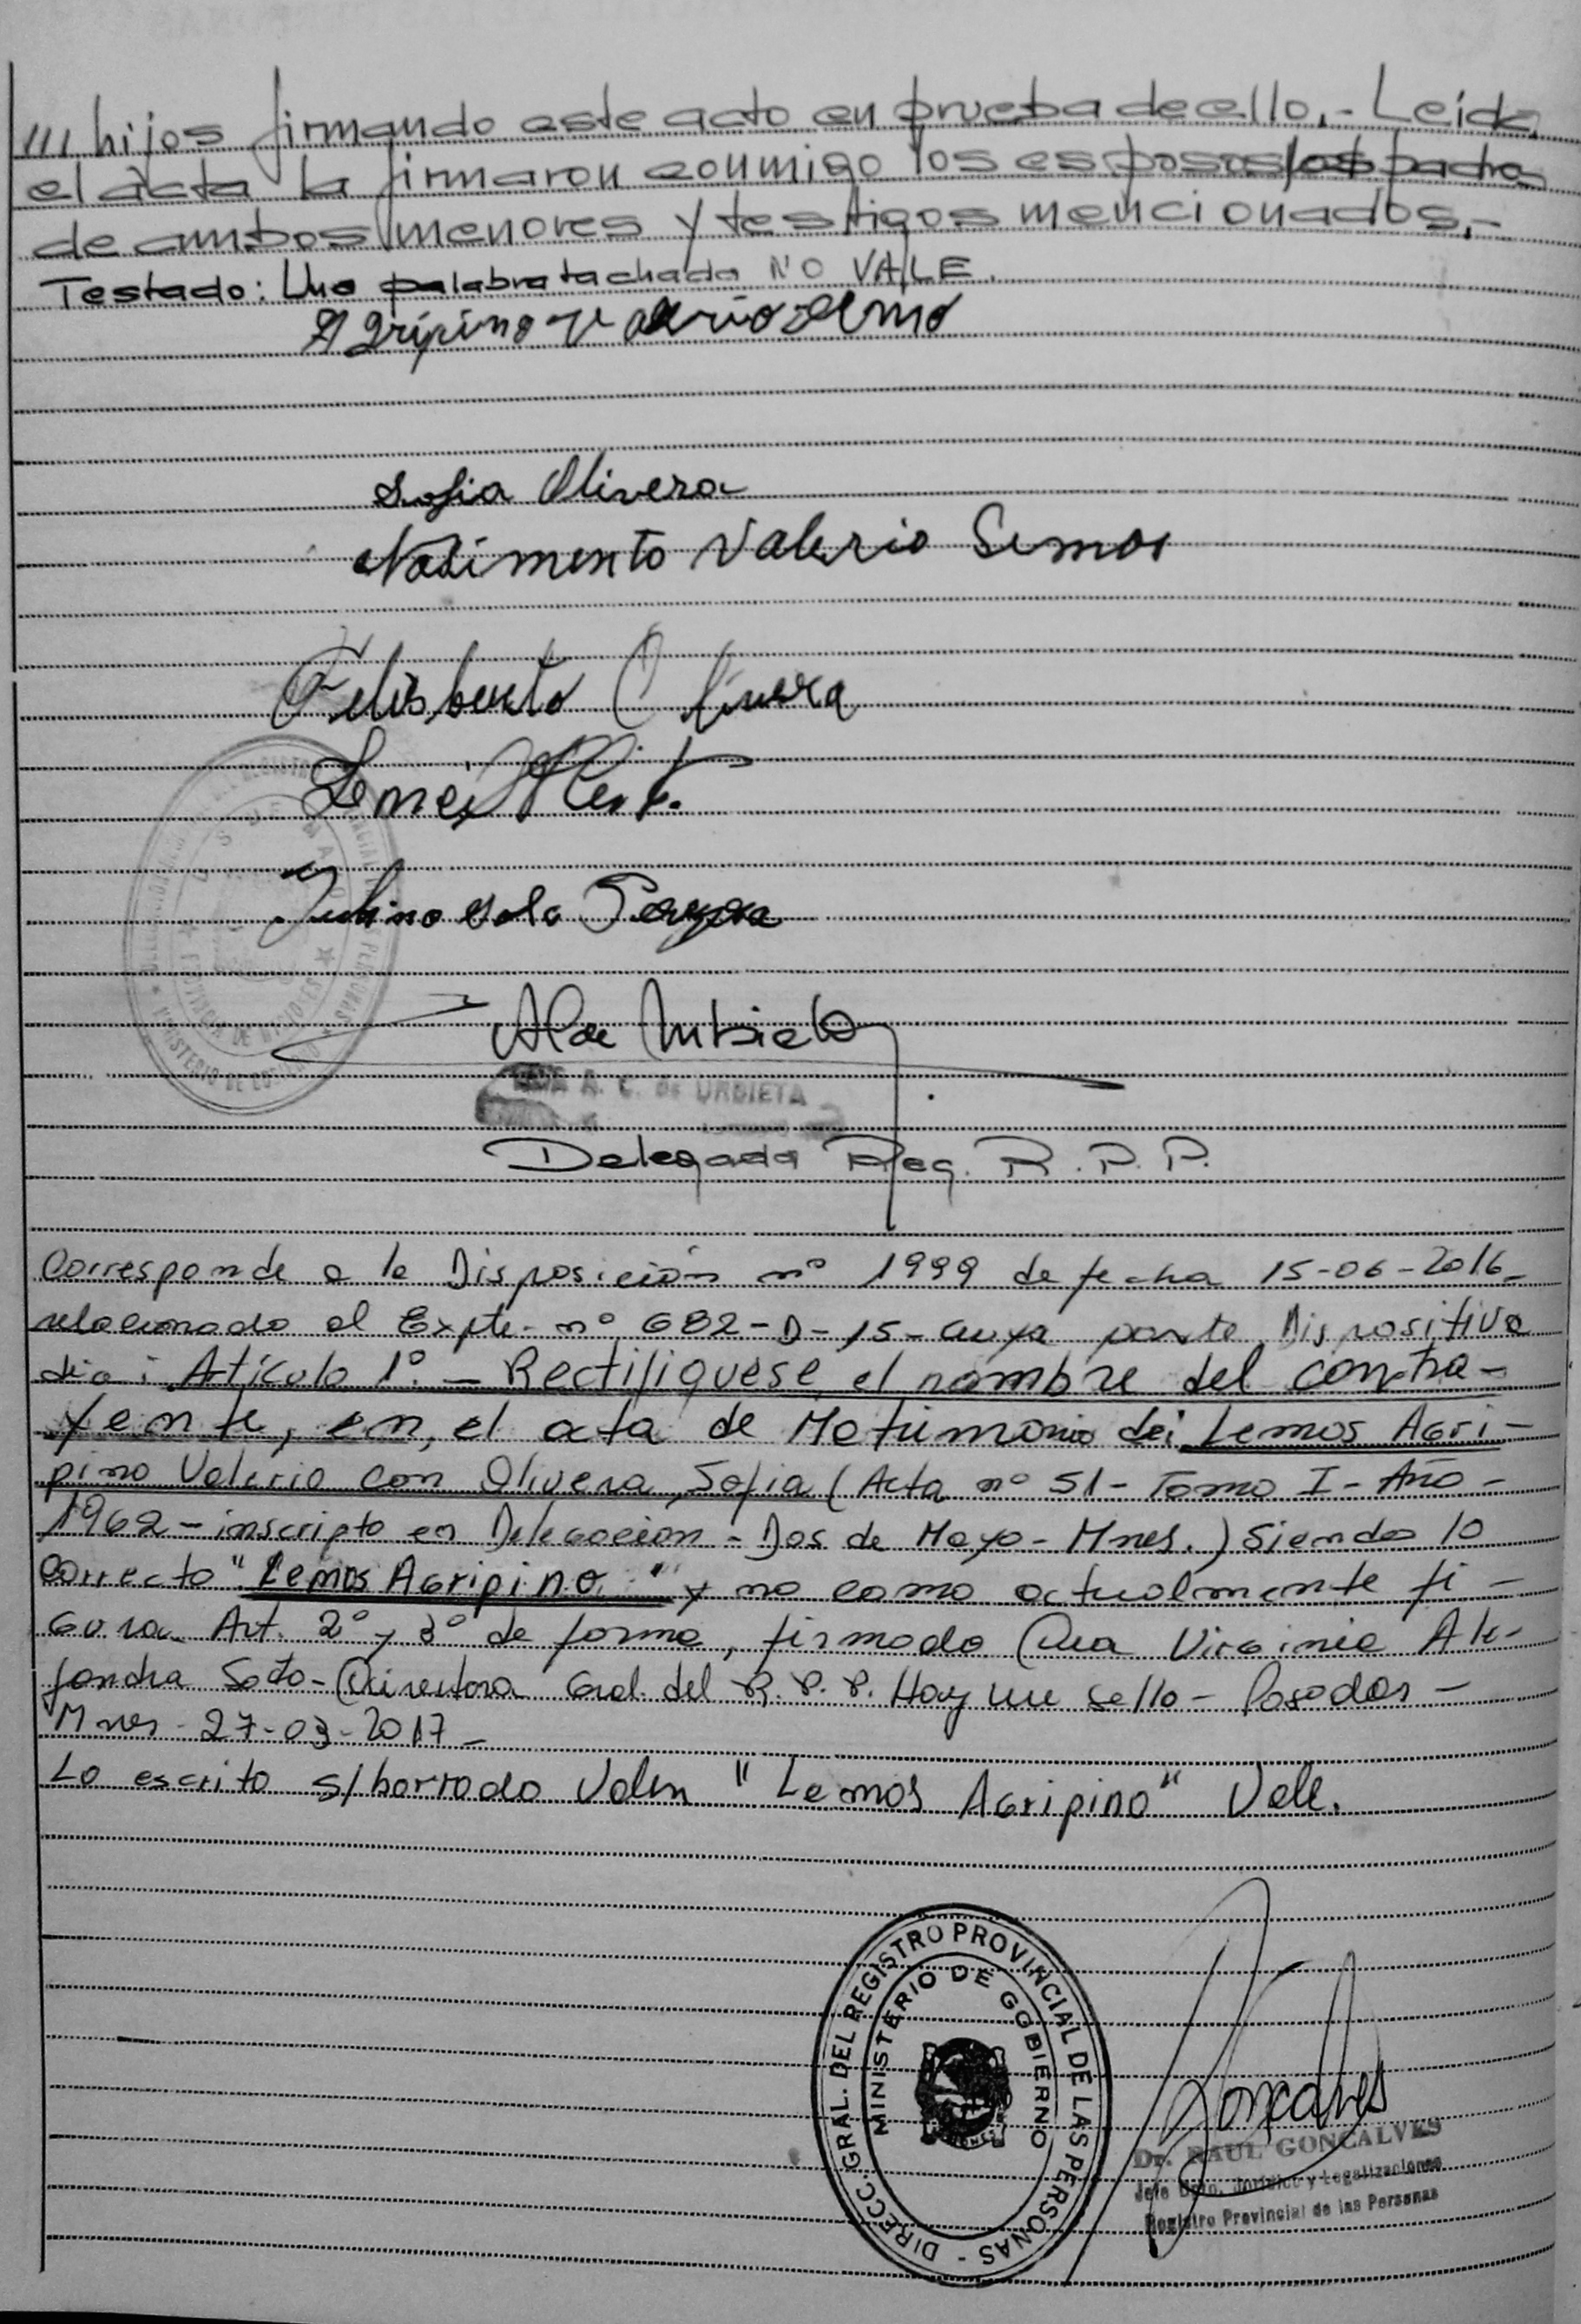 /// hijos firmando este acto en prueba de ello.- Leída
el acta la firmaron conmigo los esposos, los padres
de ambos menores y testigos mencionados.-
Testado: Una palabra tachada NO VALE.
Agripino Valerio Lemo
Sofia Olivera
Nasimento Valerio Lemos
Felisberto Olivera
Juvino Sola Pereyra
Alda Urbieta
A. C. de URBIETA
Delegada Reg. R. P. P.
Corresponde a la Disposición nº 1999 de fecha 15-06-2016-
relacionado al Expte. nº 682-D-15- cuya parte Dispositiva
dia: Artículo 1º.- Rectifiquese el nombre del contra-
yente, en el acta de Matrimonio de: Lemos Agri-
pino Valerio con Olivera Sofia (Acta nº 51- Tomo I- Año-
1962- inscripto en Delegacion- Dos de Mayo- Mnes.) Siendo lo
correcto "Lemos Agripino" y no como actualmente fi-
gura. Art. 2º y 3º de forma, firmado Dra Virginia Ale-
jandra Soto- Directora Gral. del R. P. P. Hay un sello- Posadas-
Mnes- 27-03-2017-
Lo escrito s/borrado Valen "Lemos Agripino" Vale.
DIRECC. GRAL. DEL REGISTRO PROVINCIAL DE LAS PERSONAS -
MINISTERIO DE GOBIERNO
Goncalves
Dr. RAUL GONCALVES
Jefe Dpto. Jurídico y Legalizaciones
Registro Provincial de las Personas